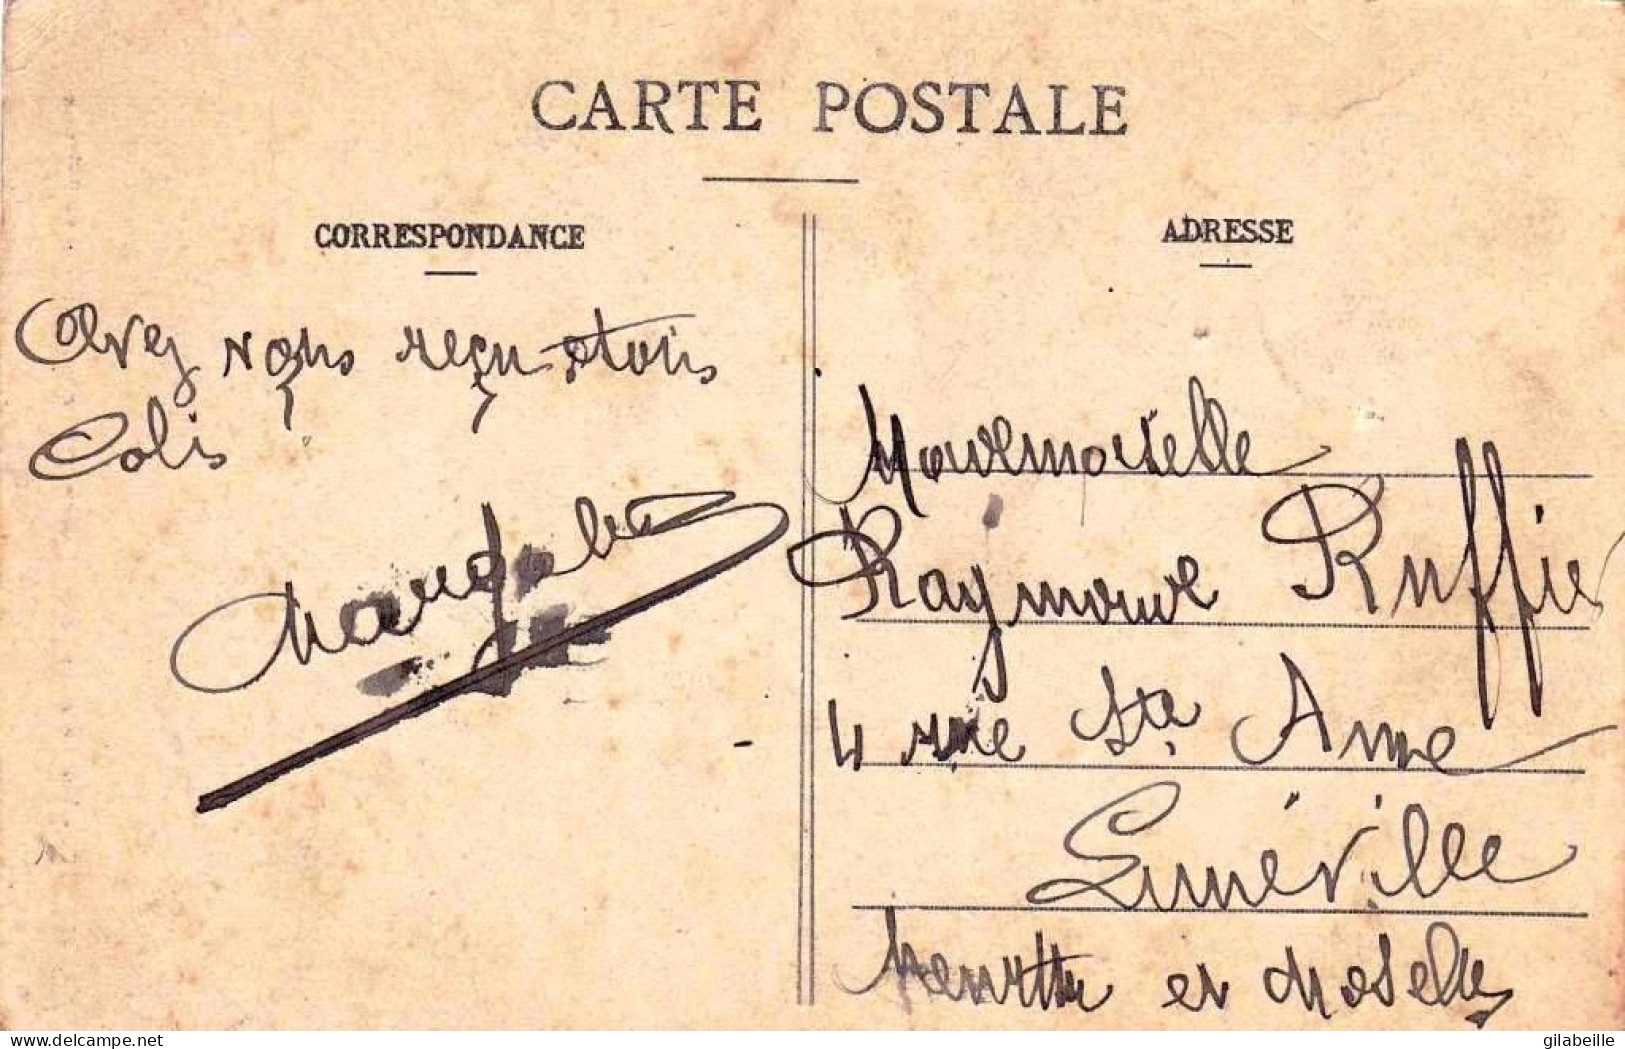 CARTE POSTALE
CORRESPONDANCE
Avez vous reçu
Colis
ADRESSE
Mademoiselle
Raymonde Ruffier
4 rue Ste Anne
Lunéville
Meurthe et Moselle
delcampe.net
gilabeille